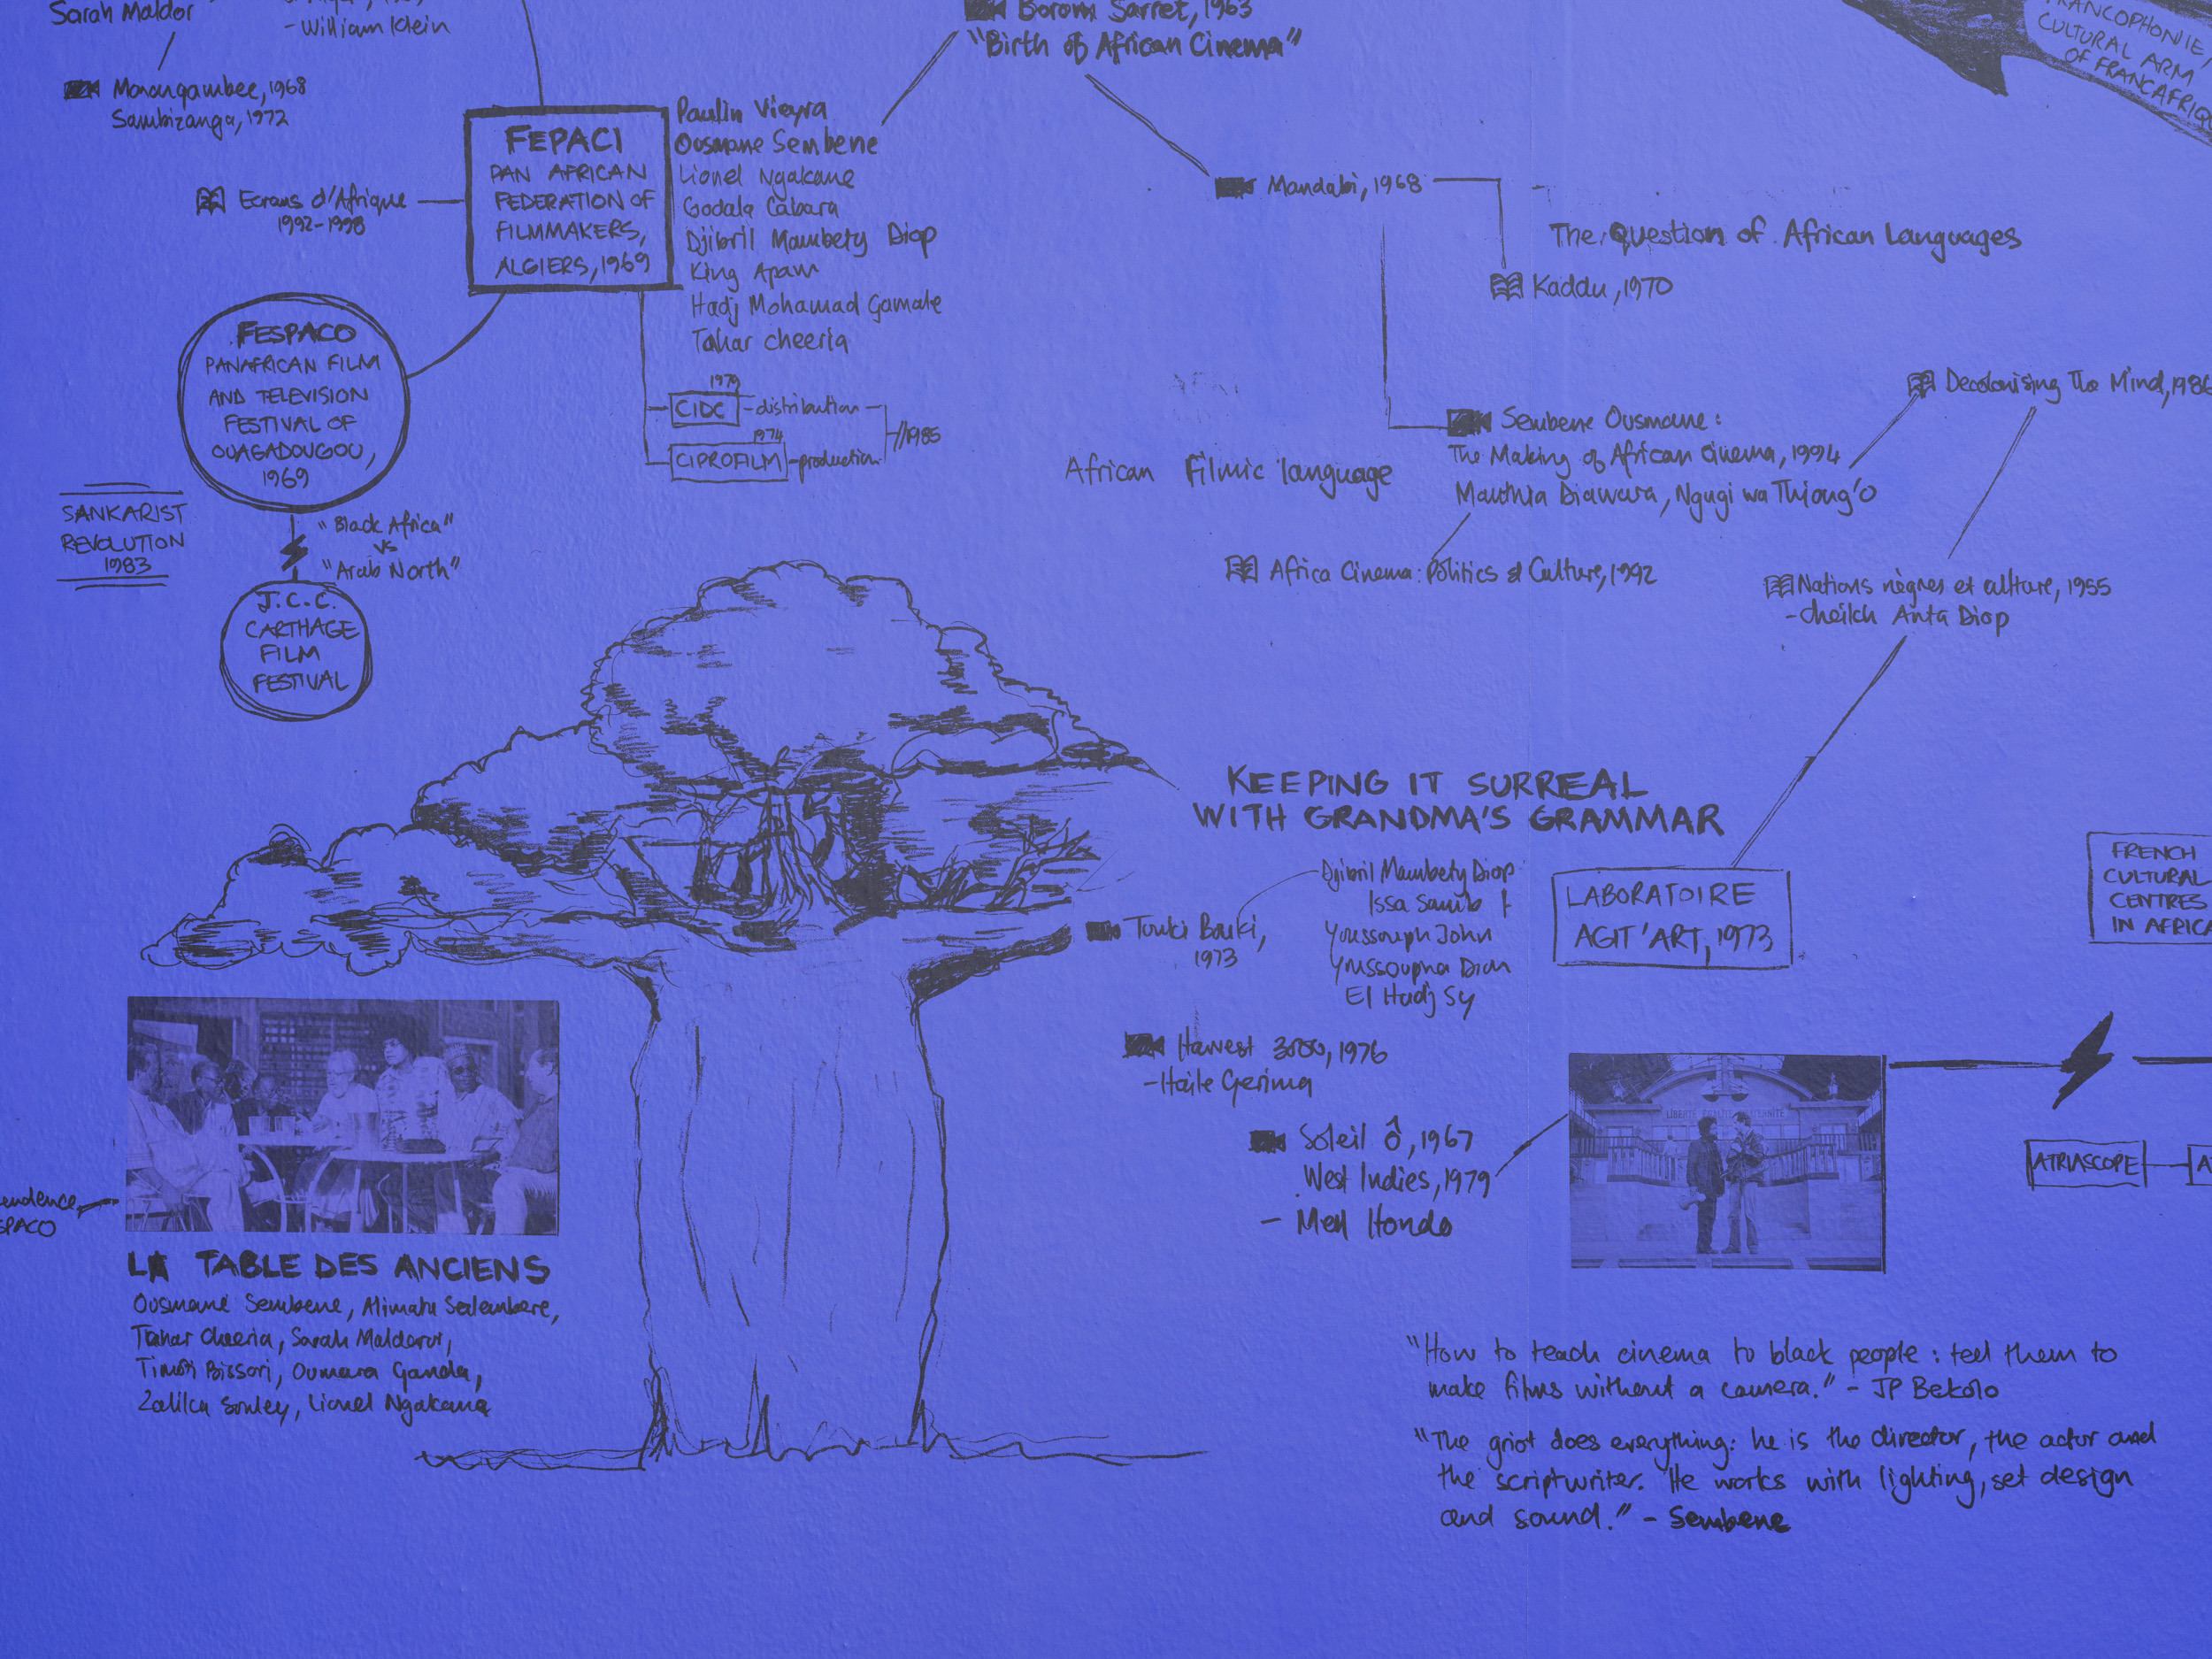 Sarah Maldor
- William Klein
Monangambee, 1968
Sambizanga, 1972
Borom Sarret, 1963
"Birth of African Cinema"
FRANCOPHONIE,
CULTURAL ARM
OF FRANCAFRIQU
FEPACI
PAN AFRICAN
FEDERATION OF
FILMMAKERS,
ALGIERS, 1969
Paulin Vieyra
Ousmane Sembene
Lionel Ngakane
Gadala Gabara
Djibril Mambety Diop
King Apaw
Hadj Mohamad Gamale
Tahar Cheeria
Ecrans d'Afrique
1992-1998
Mandabi, 1968
The Question of African Languages
Kaddu, 1970
FESPACO
PANAFRICAN FILM
AND TELEVISION
FESTIVAL OF
OUAGADOUGOU,
1969
1979
CIDC - distribution -
1974
CIPROFILM - production
//1985
SANKARIST
REVOLUTION
1983
"Black Africa"
vs
"Arab North"
J.C.C.
CARTHAGE
FILM
FESTIVAL
African Filmic language
Sembene Ousmane:
The Making of African Cinema, 1994
Manthia Diawara, Ngugi wa Thiong'o
Decolonising The Mind, 1986
Africa Cinema: Politics & Culture, 1992
Nations nègres et culture, 1955
- Cheikh Anta Diop
KEEPING IT SURREAL
WITH GRANDMA'S GRAMMAR
Djibril Mambety Diop
Issa Samb †
Youssouph John
Youssoupha Dion
El Hadj Sy
LABORATOIRE
AGIT'ART, 1973
FRENCH
CULTURAL
CENTRES
IN AFRICA
Touki Bouki,
1973
Harvest 3000, 1976
- Haile Gerima
Soleil Ô, 1967
West Indies, 1979
- Med Hondo
LIBERTÉ EGALITÉ FRATERNITÉ
ATRIASCOPE
AT
endence
SPACO
LA TABLE DES ANCIENS
Ousmane Sembene, Alimata Salembere,
Tahar Cheeria, Sarah Maldoror,
Timiti Bissori, Oumarou Ganda,
Zalika Souley, Lionel Ngakane
"How to teach cinema to black people: tell them to
make films without a camera." - JP Bekolo
"The griot does everything: he is the director, the actor and
the scriptwriter. He works with lighting, set design
and sound." - Sembene